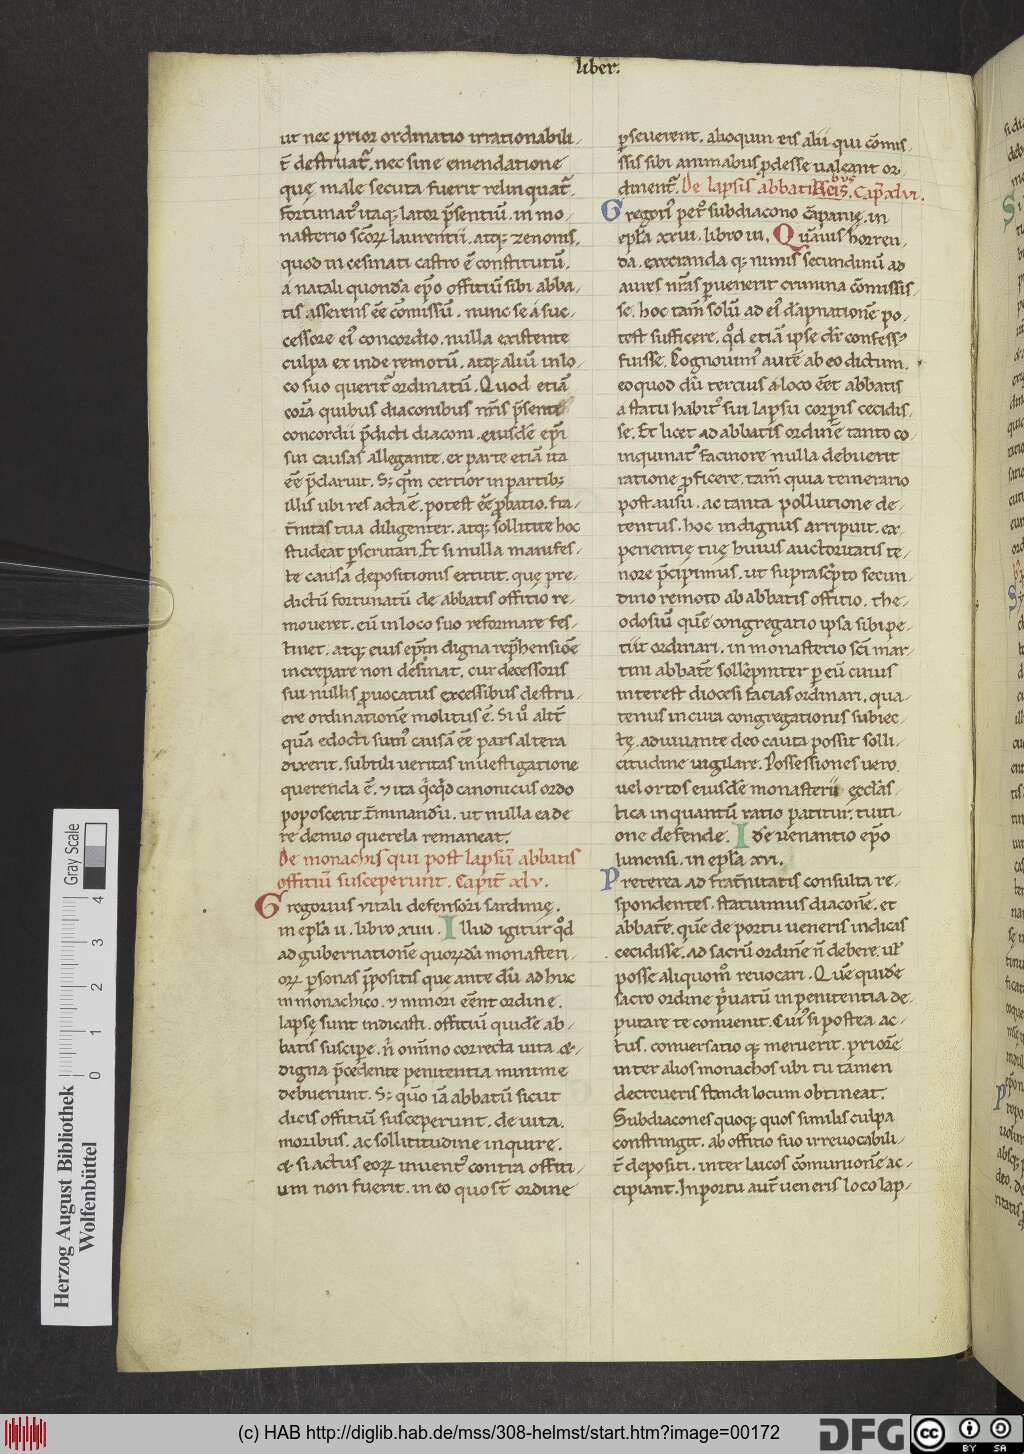 liber.
ut nec prior ordinatio irrationabili-
t̄ destruat᷑. nec sine emendatione
quę male secuta fuerit relinquat᷑.
fortunat᷒ itaq; lator p̄sentiū. in mo-
nasterio sc̄oꝝ laurentii. atq; zenonis.
quod in cesinati castro ē constitutū.
a natali quondā ep̄o offitiū sibi abba-
tis asserens ēē cōmissū. nunc se a suc-
cessore ei᷒ concordio. nulla existente
culpa ex inde remotū. atq; aliū in lo-
co suo querit᷑ ordinatū. Quod etiā
corā quibus diaconibus nr̄is p̄sente
concordii p̄dicti diaconi. eiusdē ep̄i
sui causas allegante. ex parte etiā ita
ēē p̄claruit. S; qm̄ certior in partib;
illis ubi res acta ē. potest ēē ꝓbatio. fra-
t̄nitas tua diligenter. atq; sollicite hoc
studeat ꝑscrutari. Et si nulla manifes-
te causa depositionis extitit. quę pre-
dictū fortunatū de abbatis offitio re-
moueret. eū in loco suo reformare fes-
tinet. atq; eius ep̄m digna rep̄hensiōe
increpare non desinat. cur decessoris
sui nullis ꝓuocatus excessibus destru-
ere ordinationē molitus ē. Si u᷎ alit̄
quā edocti sum᷒ causā ēē pars altera
dixerit. subtili ueritas inuestigatione
querenda ē. ⁊ ita q̇cq̇d canonicus ordo
poposcerit t̄minandū. ut nulla ea de
re denuo querela remaneat.
De monachis qui post lapsū abbatis
offitiū susceperunt. Capit̄ xlv.
Gregorius vitali defensori sardinię.
in epl̄a ii. libro xiiii. Illud igitur qd̄
ad gubernationē quorūdā monasteri-
orꝝ ꝑsonas p̄positis que ante dū ad huc
in monachico. ⁊ minori eēnt ordine.
lapsę sunt indicasti. offitiū quidē ab-
batis suscipe. n̄ om̄ino correcta uita. &
digna p̄cedente penitentia minime
debuerunt. S; qm̄o iā abbatū sicut
dicis offitiū susceperunt. de uita.
moribus. ac sollicitudine inquire.
& si actus eorꝝ inuent᷒ contra offiti-
um non fuerit. in eo quo st̄ ordine
ꝑseuerent. alioquin eis alii qui cōmis-
sis sibi animabus ꝓdesse ualeant or-
dinent᷑. De lapsis abbatibus Reis. Cap̄ xlvi.
Gregori᷒ pet᷑ subdiacono cāpanię. in
epl̄a xxiii. libro iii. Quāuis horren-
da. execranda q; nimis secundinū ad
aures nr̄as ꝑuenerit crimina cōmissis-
se. hoc tam̄ solū ad ei᷒ dāpnationē po-
test sufficere. qd̄ etiā ipse dr̄ confess᷒
fuisse. Cognouim᷒ autē ab eo dictum.
eo quod dū tercius a loco eēt abbatis
a statu habit᷒ sui lapsu corꝑis cecidis-
se. Et licet ad abbatis ordinē tanto co-
inquinat᷒ facinore nulla debuerit
ratione ꝓficere. tam̄ quia temerario
post ausu. ac tanta pollutione de-
tentus. hoc indignus arripuit. ex-
perientię tuę huius auctoritatis te-
nore p̄cipimus. ut suprascp̄to secun-
dino remoto ab abbatis offitio. the-
odosiū quē congregatio ipsa sibi pe-
tiit ordinari. in monasterio sc̄i mar-
tini abbatē sollēpniter ꝑ eū cuius
interest diocesi facias ordinari. qua-
tenus in cura congregationis subiec-
tę. adiuuante deo cauta possit solli-
citudine uigilare. Possessiones uero.
uel ortos eiusdē monasterii ęccl̄as-
tica in quantū ratio patitur. tuiti-
one defende. Idē uenantio ep̄o
lunensi. in epl̄a xvi.
Preterea ad frat̄nitatis consulta re-
spondentes. statuimus diaconē. et
abbatē. quē de portu ueneris indicas
cecidisse. ad sacrū ordinē n̄ debere. ul̄
posse aliquom̊ reuocari. Quē quidē
sacro ordine p̄uatū in penitentia de-
putare te conuenit. Cui᷒ si postea ac-
tus. conuersatio q; meruerit. priorē
inter alios monachos ubi tu tamen
decreueris standi locum obtineat.
Subdiacones quoq; quos similis culpa
constringit. ab offitio suo irreuocabili-
t̄ depositi. inter laicos cōmunionē ac-
cipiant. In portu aut̄ ueneris loco lap-
Herzog August Bibliothek
Wolfenbüttel
Gray Scale
0 1 2 3 4
(c) HAB http://diglib.hab.de/mss/308-helmst/start.htm?image=00172
DFG
cc BY SA